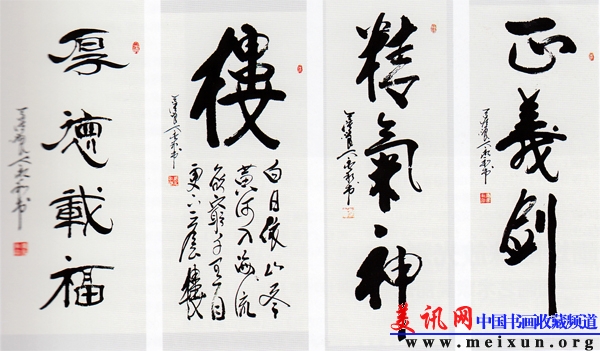 厚德載福
樓
白日依山尽
黄河入海流
欲窮千里目
更上一層樓
精氣神
正義剑
美讯网 中国书画收藏频道
www.meixun.org